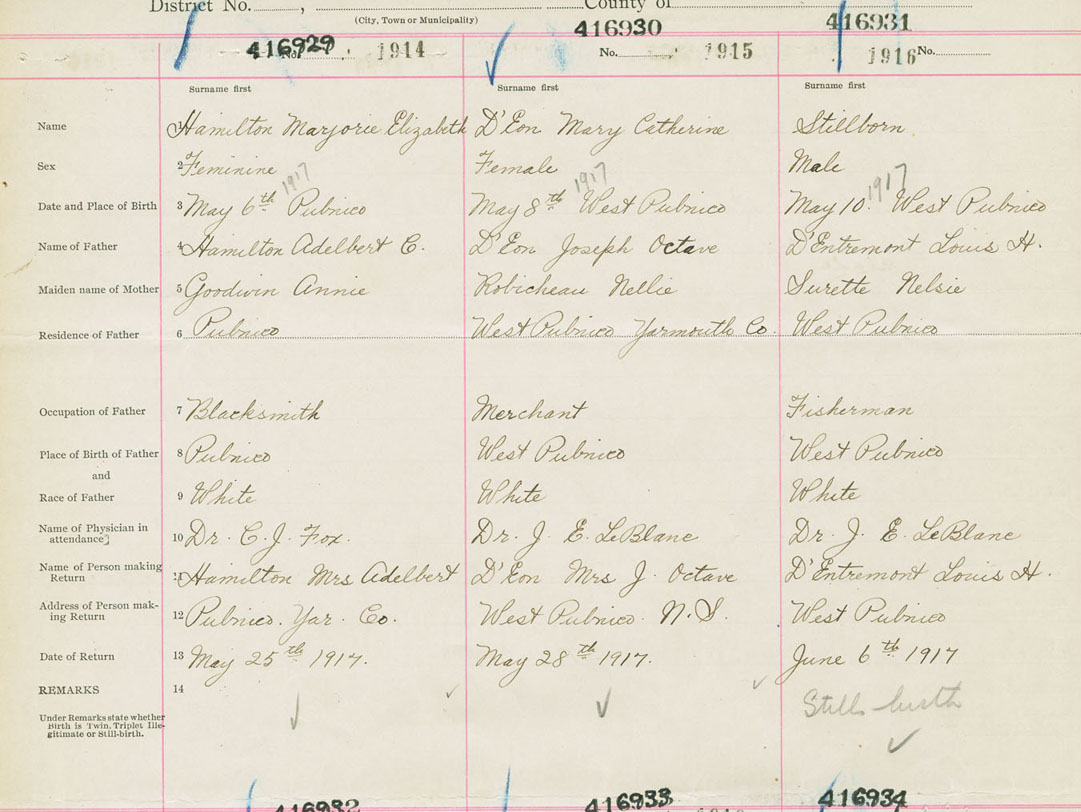 District No. , County of
(City, Town or Municipality)
416929 416930 416931
No. 1914 No. 1915 1916 No.
Surname first Surname first Surname first
Name 1 Hamilton Marjorie Elizabeth D'Eon Mary Catherine Stillborn
Sex 2 Feminine Female Male
1917 1917 1917
Date and Place of Birth 3 May 6th Pubnico May 8th West Pubnico May 10. West Pubnico
Name of Father 4 Hamilton Adelbert C. D'Eon Joseph Octave D'Entremont Louis H.
Maiden name of Mother 5 Goodwin Annie Robicheau Nellie Surette Nelsie
Residence of Father 6 Pubnico West Pubnico Yarmouth Co. West Pubnico
Occupation of Father 7 Blacksmith Merchant Fisherman
Place of Birth of Father 8 Pubnico West Pubnico West Pubnico
and
Race of Father 9 White White White
Name of Physician in
attendance 10 Dr. C. J. Fox. Dr. J. E. LeBlanc Dr. J. E. LeBlanc
Name of Person making
Return 11 Hamilton Mrs Adelbert D'Eon Mrs J. Octave D'Entremont Louis H.
Address of Person mak-
ing Return 12 Pubnico. Yar. Co. West Pubnico N.S. West Pubnico
Date of Return 13 May 25th 1917. May 28th 1917. June 6th 1917
REMARKS 14 Still birth
Under Remarks state whether
Birth is Twin, Triplet Ille-
gitimate or Still-birth.
416932 416933 416934